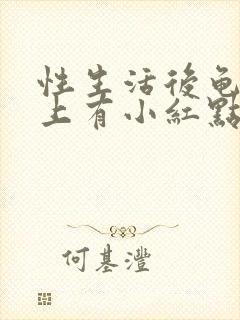 性生活後龟
上有小紅點
何基灃